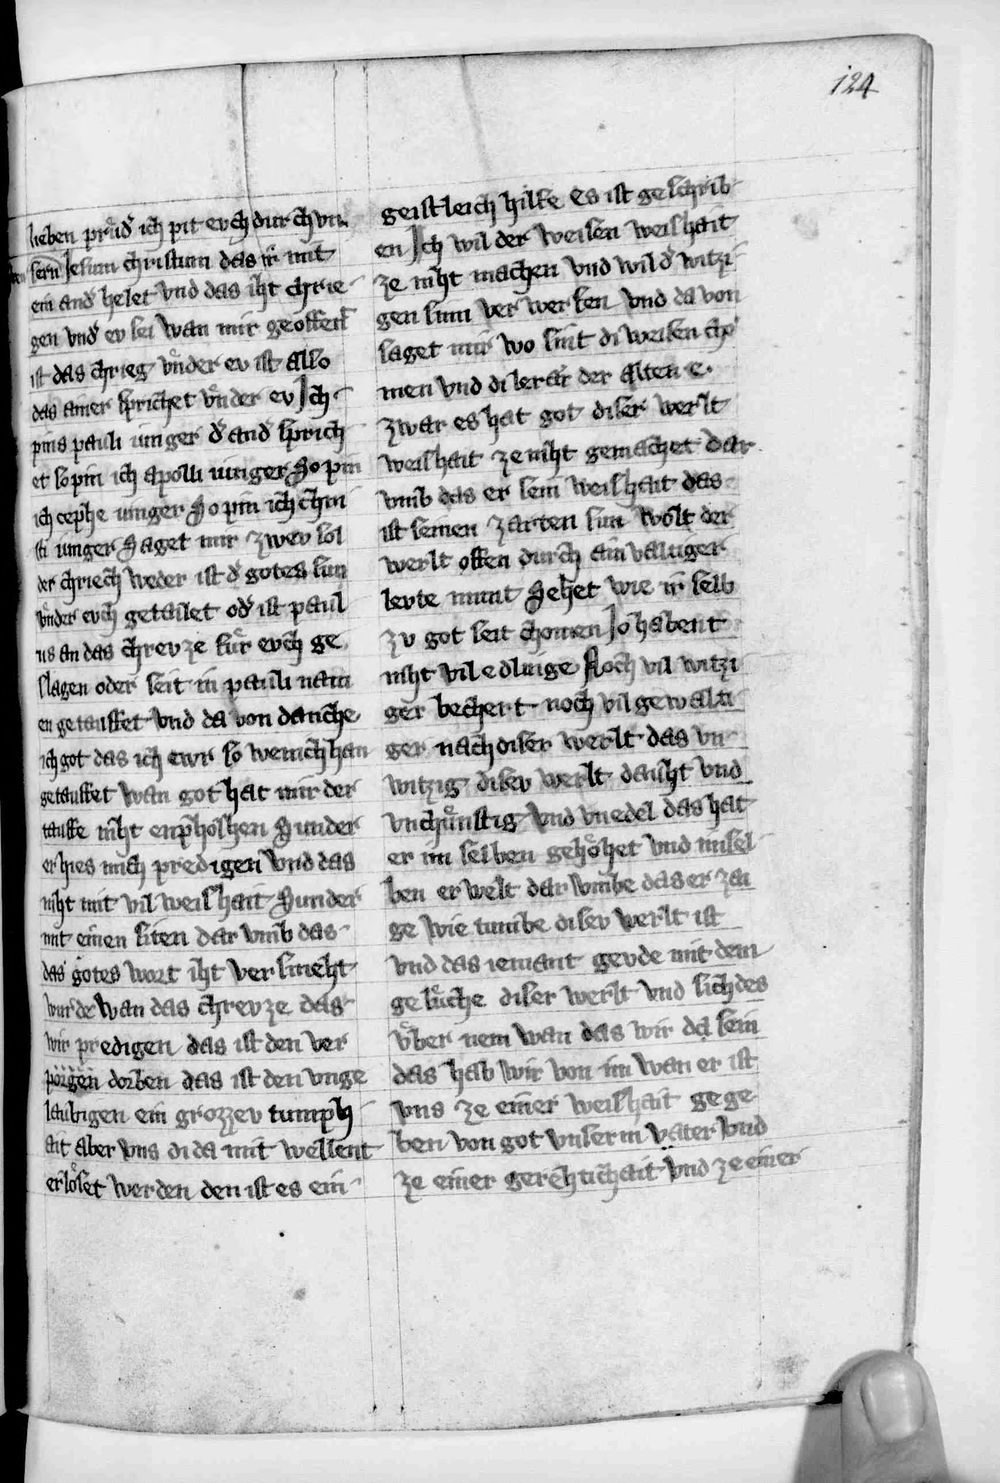 124
lieben průd̛ ich pit evch durch vn
sern̄ Jesum christum das ir̄ mit
ein and̛ helet vnd das iht chrie
gen vnd̛ ev sei wan mir geoffen̄t
ist das chrieg vnder ev ist also
das ainer sprichet vnder ev Jch
pins pauli iunger d̛ and̛ sprich
et so pin ich apolli iunger So pin
ich cephe iunger So pin ich chri
sti iunger Saget mir zwev sol
der chriech weder ist d̛ gotes sun
vnder evch getailet od̛ ist paul
us an das chrevze fůr evch ge
slagen oder seit in pauli nam
en getauffet vnd da von danche
ich got das ich ewr so wenich han
getauffet wan got hat mir der
tauffe niht enpholhen Sunder
er hies mich predigen vnd das
niht mit vil weishait Sunder
mit einen siten dar vmb das
das gotes wort iht versmeht
wurde wan das chrevze das
wir predigen das ist den ver
dorben das ist den vnge
laubigen ein grozzev tumph
ait aber vns di da mit wellent
erlöset werden den ist es ein
geistleich hilfe Es ist geschrib
en Jch wil der weisen weishait
ze niht machen vnd wil d̛ witzi
gen sinn ver werfen vnd da von
saget mir wo sint di weisen cho
men vnd di lerär der alten e
zwar es hat got diser werlt
weishait ze niht gemachet dar
vmb das er sein weishait das
ist seinen zarten sun wolt der
werlt offen durch ainvaltiger
levte munt Sehet wie ir selb
zv got seit chomen Jo habent
niht vil edlinge Noch vil witzi
ger bechert noch vil gewalti
ger nach diser werlt das vn
witzig disev werlt dauht vnd
vnchůnstig vnd vnedel das hat
er im selben gehöhet vnd im sel
ben erwelt dar vmbe das er zai
ge wie tumbe disev werlt ist
vnd das iemant gevde mit dem
gelůche diser werlt vnd sich des
vber nem wan das wir da sein
das hab wir von im wan er ist
vns ze einer weishait gege
ben von got vnserm vater vnd
ze einer gerehtichait vnd ze einer